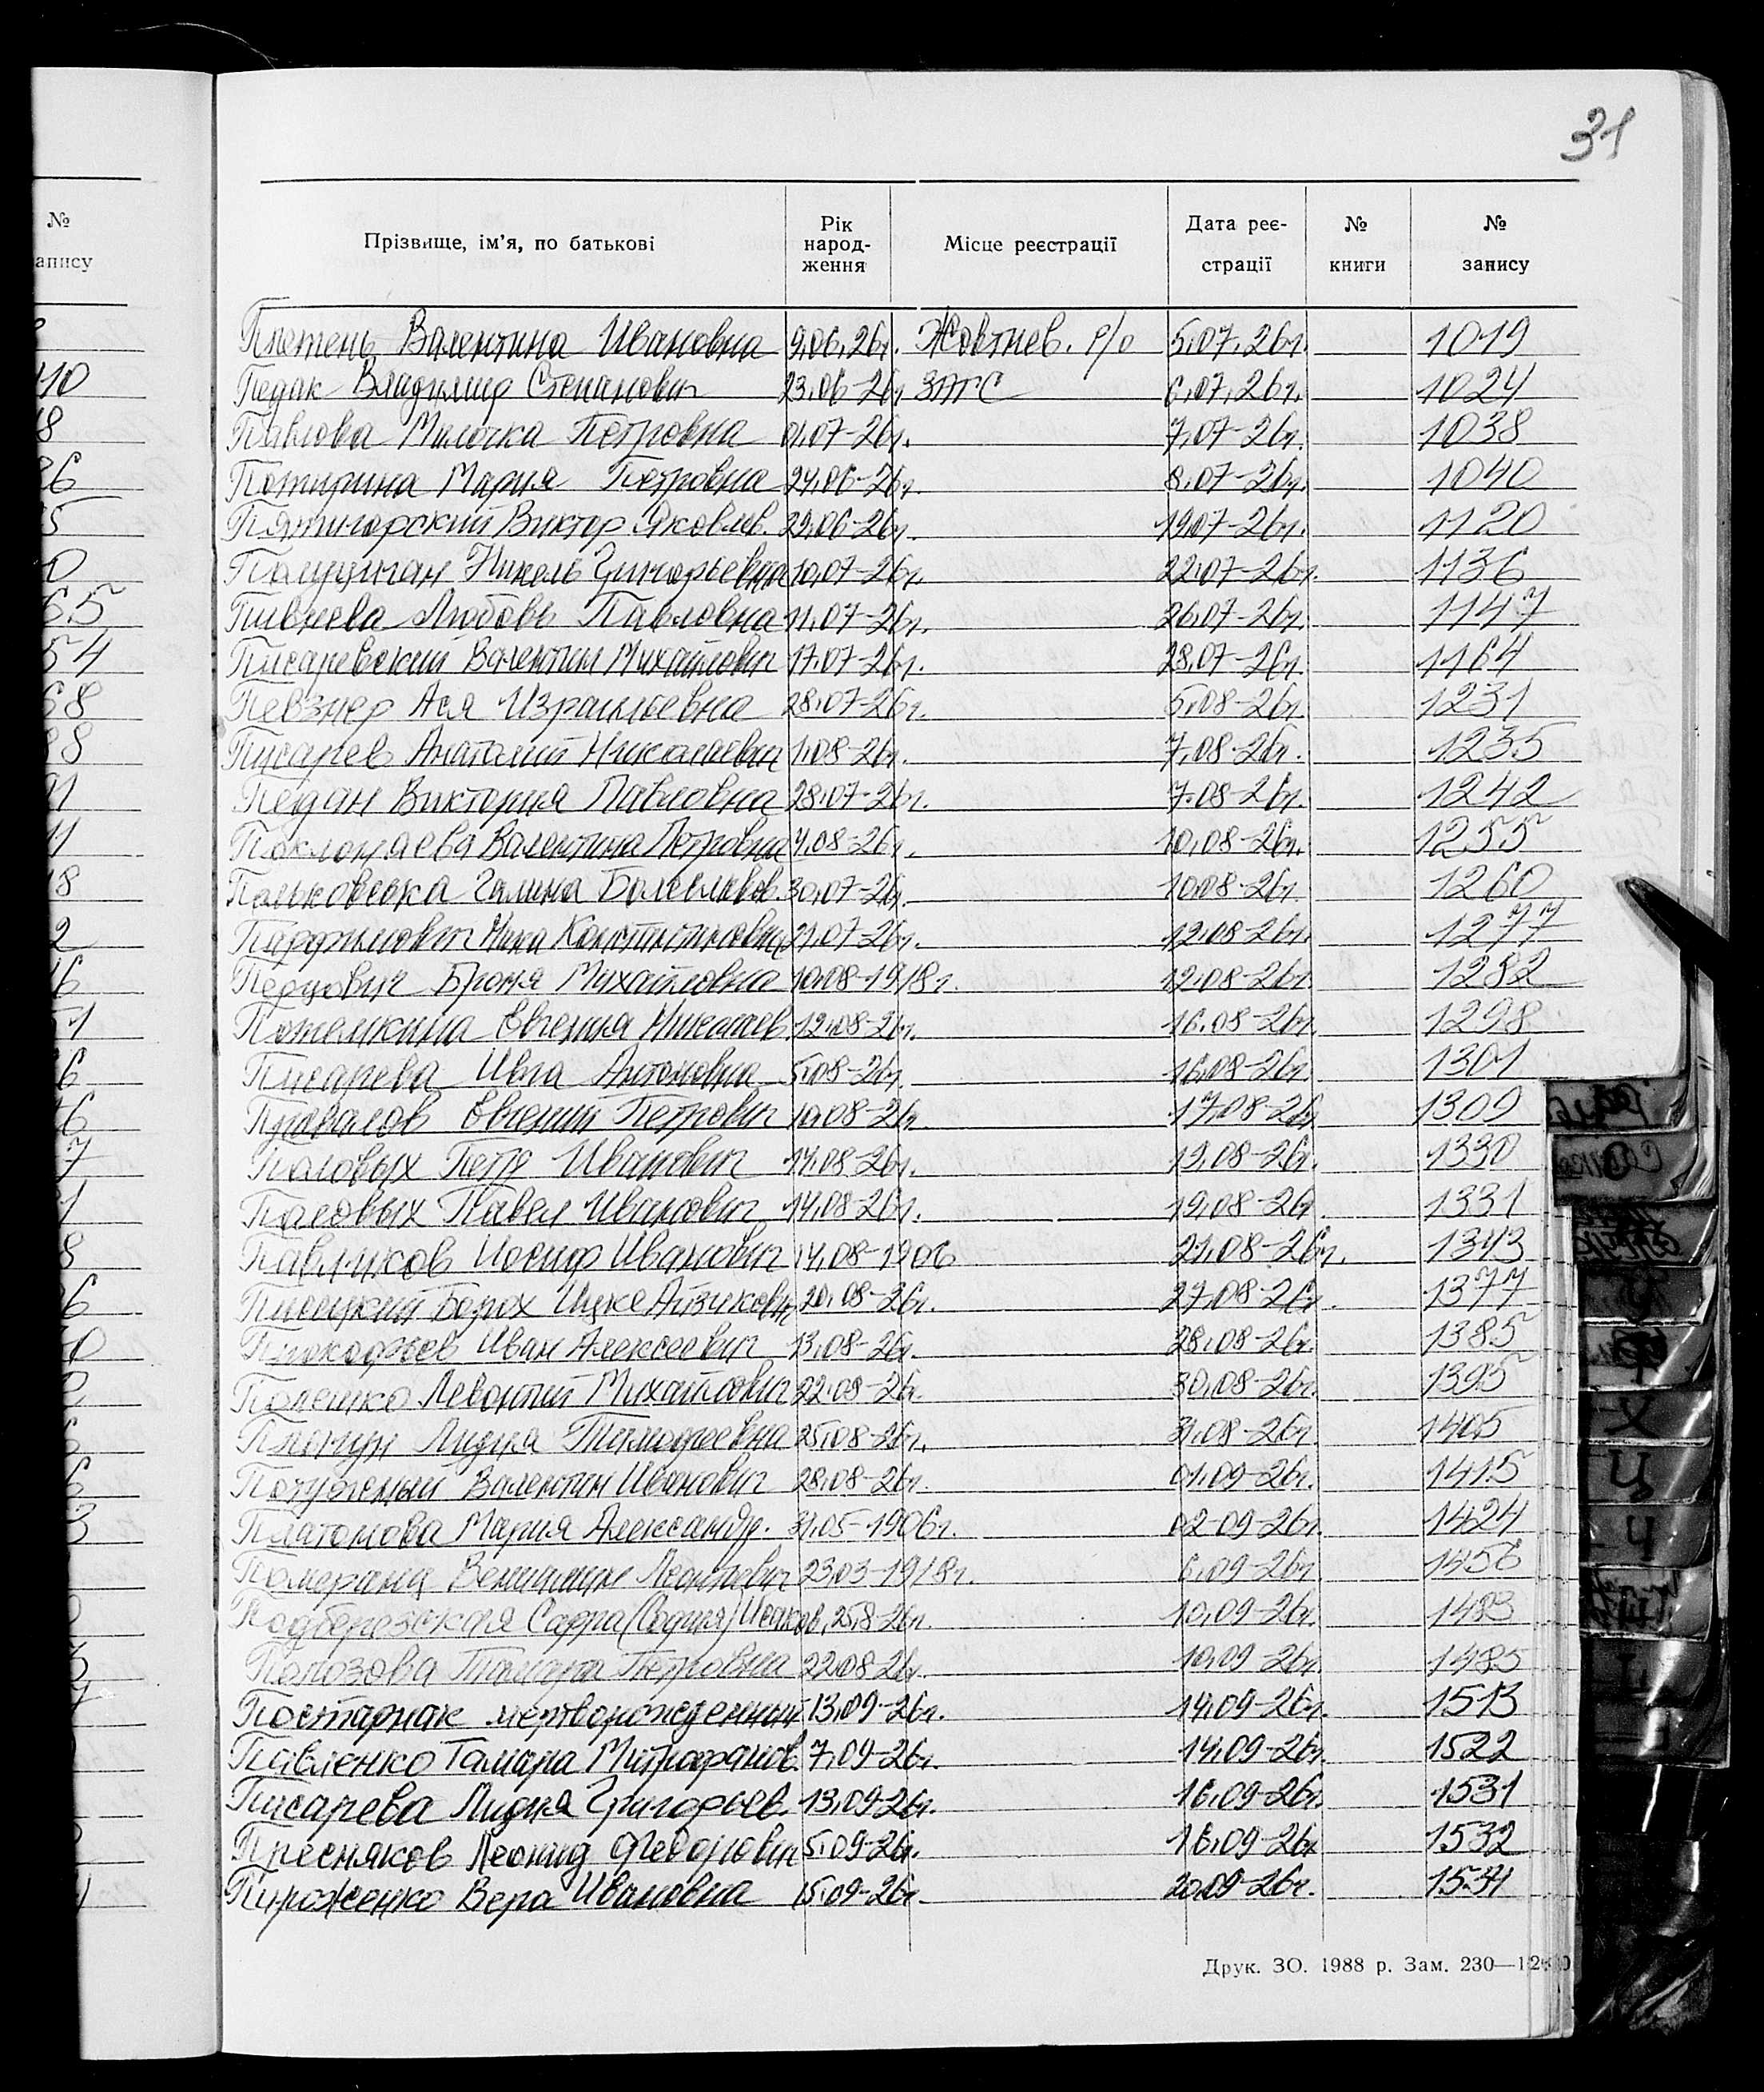 31
№
запису
Прізвище, ім’я, по батькові
Рік народ-ження
Місце реєстрації
Дата реє-страції
№ книги
№ запису
Плетень Валентина Ивановна 9.06.26г. Жовтнев. р/о 5.07.26г. 1019
Педак Владимир Степанович 23.06-26г ЗАГС 6.07.26г. 1024
Павлова Милочка Петровна 01.07-26г. 7.07-26г. 1038
Потирина Мария Петровна 24.06-26г. 8.07-26г. 1040
Пятигорский Виктор Яковлев. 29.06-26г. 19.07-26г. 1120
Нинель Григорьевна 10.07-26г. 22.07-26г. 1136
Пивнева Любовь Павловна 11.07-26г. 26.07-26г. 1147
Писаревский Валентин Михайлович 17.07-26г. 28.07-26г. 1164
Певзнер Ася Израильевна 28.07-26г. 5.08-26г. 1231
Писарев Анатолий Николаевич 1.08-26г. 7.08-26г. 1235
Педан Виктория Павловна 28.07-26г. 7.08-26г. 1242
Поклонаева Валентина Петровна 4.08-26г. 10.08-26г. 1255
Паньковська Галина Болеславов. 30.07-26г. 10.08-26г. 1260
Парфимович Нина Константиновна 21.07-26г. 12.08-26г. 1277
Перцович Броня Михайловна 10.08-1918г. 12.08-26г 1282
Потемкина Евгения Николаев. 12.08-26г. 16.08-26г. 1298
Писарева Инга Антоновна 5.08-26г. 16.08-26г. 1301
Провалов Евгений Петрович 10.08-26г. 17.08-26г 1309
Половых Петр Иванович 14.08-26г. 19.08-26г. 1330
Половых Павел Иванович 14.08-26г. 19.08-26г. 1331
Павликов Иосиф Иванович 14.08-1906 21.08-26г. 1343
Писецкий Борох Ицке Айзикович 20.08-26г. 27.08-26г. 1377
Прокофьев Иван Алексеевич 13.08-26г. 28.08-26г. 1385
Поленко Леонтий Михайлович 22.08-26г. 30.08-26г. 1395
Лидия Тимофеевна 25.08-26г. 31.08-26г. 1405
Потужный Валентин Иванович 28.08-26г. 01.09-26г. 1415
Платонова Мария Александр. 31.05-1906г. 02-09-26г. 1424
Померанц Вениамин Леонтьевич 23.03-1918г. 6.09-26г 1456
Подберезская Сарра (София) Исаков. 25.8-26г. 10.09-26г. 1483
Полозова Тамара Петровна 22.08-26г. 10.09-26г. 1485
Постарнак мертворожденный 13.09-26г. 14.09-26г. 1513
Павленко Тамара Митрофанов. 7.09-26г. 14.09-26г. 1522
Писарева Лидия Григорьев. 13.09-26г. 16.09-26г. 1531
Пресняков Леонид Федорович 5.09-26г. 16.09-26г 1532
Пироженко Вера Ивановна 15.09-26г. 20.09-26г. 1534
Друк. ЗО. 1988 р. Зам. 230—
Х
Ц
Ч